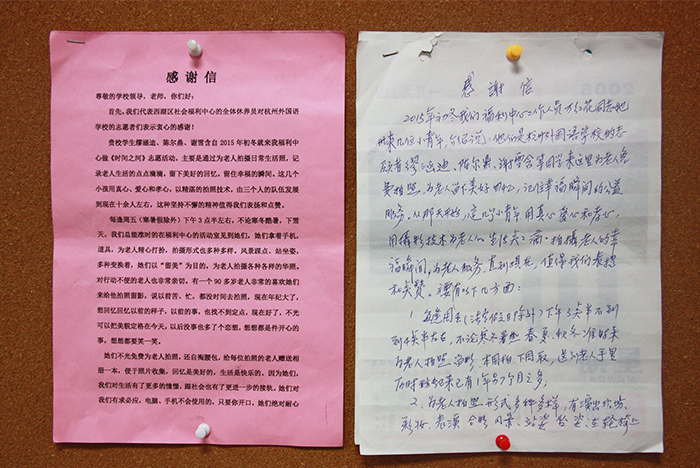 感 谢 信
尊敬的学校领导、老师，你们好：
首先，我们代表西湖区社会福利中心的全体休养员对杭州外国语
学校的志愿者们表示衷心的感谢！
贵校学生缪涵迪、陈尔鼎、谢雪含自2015年初冬就来我福利中心
做《时间之河》志愿活动，主要是通过为老人拍摄日常生活照，记
录老人生活的点点滴滴，留下美好的回忆，留住幸福的瞬间。这几个
小孩用真心、爱心和孝心，以精湛的拍照技术，由三个人的队伍发展
到现在十余人左右，这种坚持不懈的精神值得我们表扬和点赞。
每逢周五（寒暑假除外）下午3点半左右，不论寒冬酷暑、下雪
天，我们总能准时的在福利中心的活动室见到她们，她们拿着手机、
道具，为老人精心打扮，拍摄形式也多种多样。风景踩点、站坐姿，
多种变换着，她们以“留美”为目的，为老人拍摄各种各样的华照。
对行动不便的老人也非常亲切。有一个90多岁老人非常的喜欢她们
来给他拍照留影。说以前苦、忙，都没时间去拍照，现在年纪大了，
想回忆回忆以前的样子，以前的事，也找不到定点，现在好了，不光
可以把美貌定格在今天，以后没事也多了个恋想，想想都是件开心的
事，想想都要笑一笑。
她们不光免费为老人拍照，还自掏腰包，给每位拍照的老人赠送相
册一本，便于照片收集，回忆是美好的，生活是快乐的。因为她们，
我们对生活有了更多的憧憬，跟社会也有了更进一步的接轨。她们对
我们有求必应，电脑、手机不会使用的，只要你开口，她们绝对耐心
感 谢 信
2015年初冬我的福利中心工作人员方红花同志她
带来几位小青年，介绍说，他们是杭州外国语学校的志
愿者缪涵迪、陈尔鼎、谢雪含等同学来这里为老人免
费拍照，为老人留下美好回忆，记住幸福瞬间的公益
服务，从那天起，这几个小青年用真心爱心和孝心，
用摄影技术为老人的生活点点滴滴拍摄老人的幸
福瞬间，为老人服务，直到现在，值得我们表扬
和点赞。主要有以下几方面：
1、每逢周五（法定假日除外）下午3点半不到
到4点半左右，不论寒冬暑热，春夏秋冬准时来
为老人拍照
历时
2、为老人拍照形式多种多样，有
彩妆、表演、合影、风景、站姿、坐姿、坐轮椅上